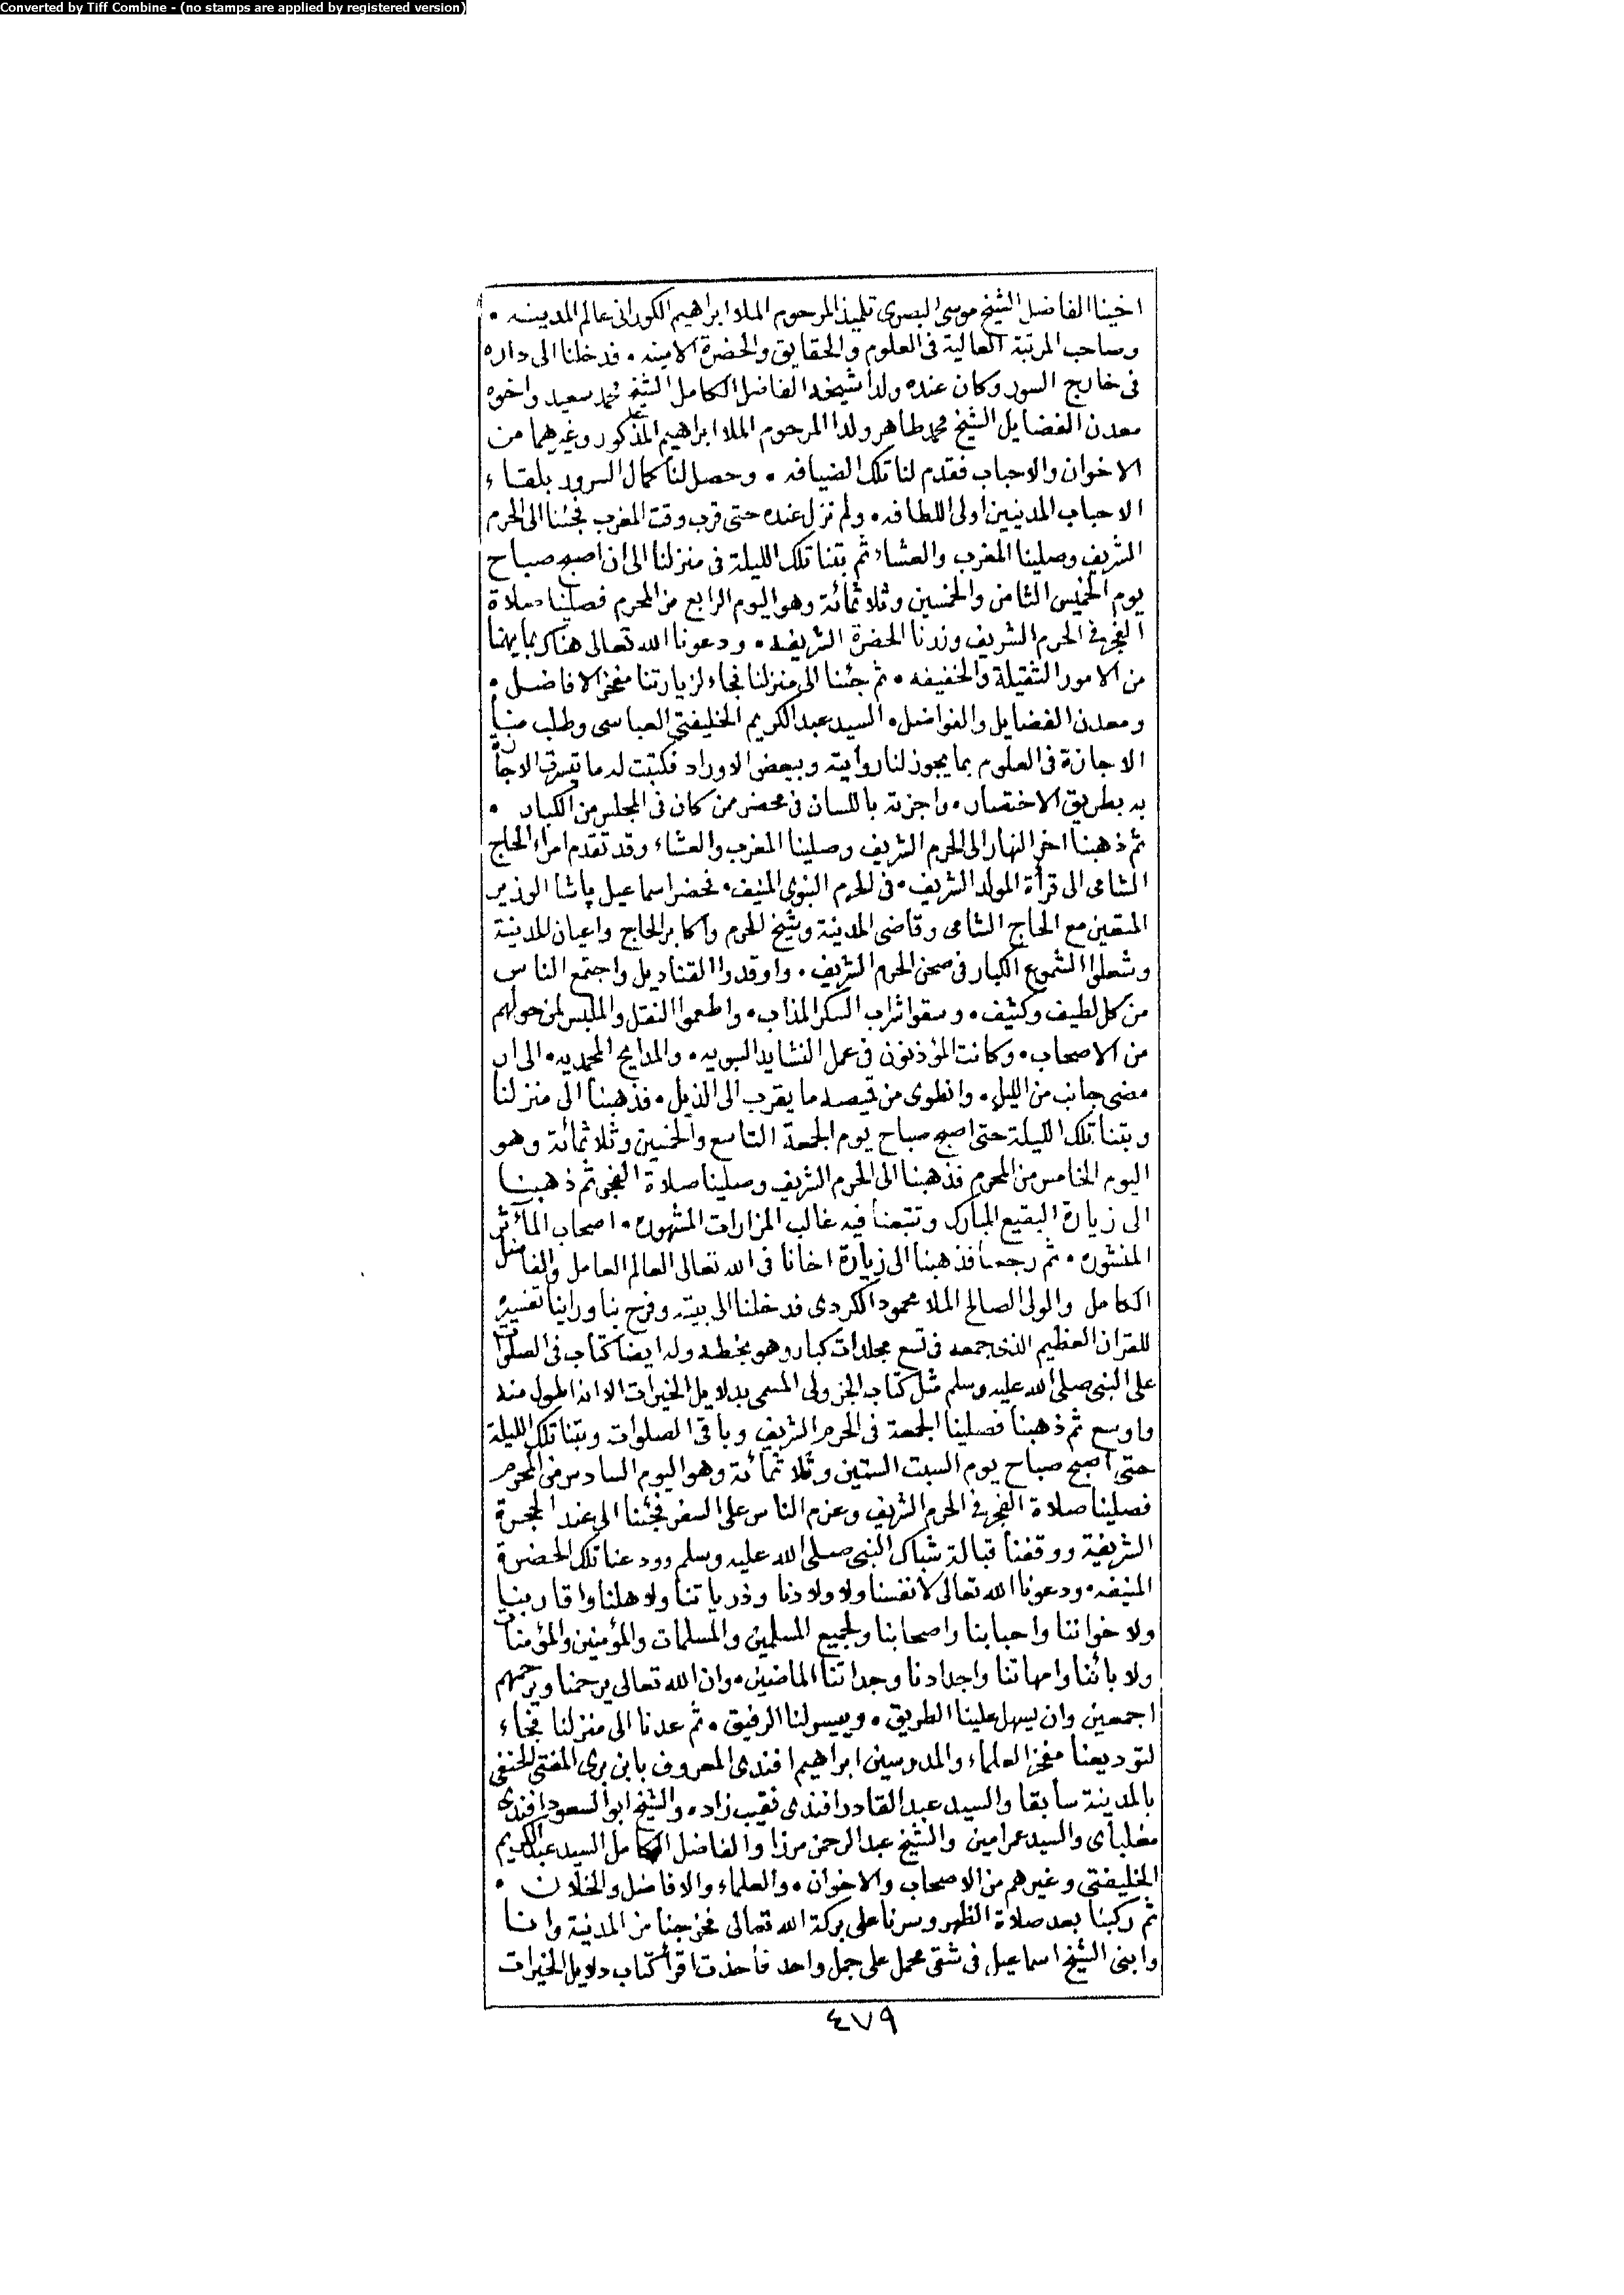 Converted by Tiff Combine - (no stamps are applied by registered version)
اخينا الفاضل الشيخ موسى البصرى تلميذ المرحوم الملا ابراهيم الكورانى عالم المدينه •
وصاحب المرتبة العالية فى العلوم والحقايق والحضرة الامينه • فدخلنا الى داره
فى خارج السور وكان عنده ولدا شيخه الفاضل الكامل الشيخ محمد سعيد واخوه
معدن الفضايل الشيخ محمد طاهر ولدا المرحوم الملا ابراهيم المذكور وغيرهما من
الاخوان والاحباب فقدم لنا تلك الضيافه • وحصل لنا كمال السرور بلقاء
الاحباب المدنيين اولى اللطافه • ولم نزل عنده حتى قرب وقت المغرب فجئنا الى الحرم
الشريف وصلينا المغرب والعشاء ثم بتنا تلك الليلة فى منزلنا الى ان اصبح صباح
يوم الخميس الثامن والخمسين وثلاثمائة وهو اليوم الرابع من المحرم فصلينا صلاة
الفجر فى الحرم الشريف وزرنا الحضرة الشريفه • ودعونا الله تعالى هناك بما يهمنا
من الامور الثقيلة والخفيفه • ثم جئنا الى منزلنا فجاء لزيارتنا مفخر الافاضل •
ومعدن الفضايل والفواضل • السيد عبد الكريم الخليفتى العباسى وطلب منا
الاجازة فى العلوم بما يجوز لنا روايته وببعض الاوراد فكتبت له ما تيسرت الاجازة
به بطريق الاختصار • واجزته باللسان فى محضر من كان فى المجلس من الكبار •
ثم ذهبنا اخر النهار الى الحرم الشريف وصلينا المغرب والعشاء وقد تقدم امراء الحاج
الشامى الى قرأة المولد الشريف • فى الحرم النبوى المنيف • فحضر اسماعيل پاشا الوزير
المتعين مع الحاج الشامى وقاضى المدينة وشيخ الحرم واكابر الحاج واعيان المدينة
وشعلوا الشموع الكبار فى صحن الحرم الشريف • واوقدوا القناديل واجتمع الناس
من كل لطيف وكثيف • وسقوا شراب السكر المذاب • واطعموا النقل والملبس لمن حولهم
من الاصحاب • وكانت المؤذنون فى عمل النشايد النبويه • والمدايح المحمديه • الى ان
مضى جانب من الليل • وانطوى من قميصه ما يقرب الى الذيل • فذهبنا الى منزلنا
وبتنا تلك الليلة حتى اصبح صباح يوم الجمعة التاسع والخمسين وثلاثمائة وهو
اليوم الخامس من المحرم فذهبنا الى الحرم الشريف وصلينا صلاة الفجر ثم ذهبنا
الى زيارة البقيع المبارك وتتبعنا فيه غالب المزارات المشهوره • اصحاب المآثر
المنشوره • ثم رجعنا فذهبنا الى زيارة اخانا فى الله تعالى العالم العامل والفاضل
الكامل والولى الصالح الملا محمود الكردى فدخلنا الى بيته وفرح بنا وراينا تفسيره
للقران العظيم الذى جمعه فى تسع مجلدات كبار وهو بخطه وله ايضا كتاب فى الصلوات
على النبى صلى الله عليه وسلم مثل كتاب الجزولى المسمى بدلايل الخيرات الا انه اطول منه
واوسع ثم ذهبنا فصلينا الجمعة فى الحرم الشريف وباقى الصلوات وبتنا تلك الليلة
حتى اصبح صباح يوم السبت الستين وثلاثمائة وهو اليوم السادس من المحرم
فصلينا صلاة الفجر فى الحرم الشريف وعزم الناس على السفر فجئنا الى عند الحجرة
الشريفة ووقفنا قبالة شباك النبى صلى الله عليه وسلم وودعنا تلك الحضرة
المنيفه • ودعونا الله تعالى لانفسنا ولاولادنا وذرياتنا ولاهلنا واقاربنا
ولاخواننا واحبابنا واصحابنا ولجميع المسلمين والمسلمات والمؤمنين والمؤمنات
ولابائنا وامهاتنا واجدادنا وجداتنا الماضين • وان الله تعالى يرحمنا ويرحمهم
اجمعين وان يسهل علينا الطريق • وييسر لنا الرفيق • ثم عدنا الى منزلنا فجاء
لتوديعنا مفخر العلماء والمدرسين ابراهيم افندى المعروف بابن برى المفتى الحنفى
بالمدينة سابقا والسيد عبد القادر افندى نقيب زاده • والشيخ ابو السعود افندى
مغلباى والسيد عمر امين والشيخ عبد الرحمن مرزا والفاضل الكامل السيد عبد الكريم
الخليفتى وغيرهم من الاصحاب والاخوان • والعلماء والافاضل والخلان •
ثم ركبنا بعد صلاة الظهر وسرنا على بركة الله تعالى فخرجنا من المدينة وانا
وابنى الشيخ اسماعيل فى شقى محمل على جمل واحد فأخذت اقرأ كتاب دلايل الخيرات
٤٧٩